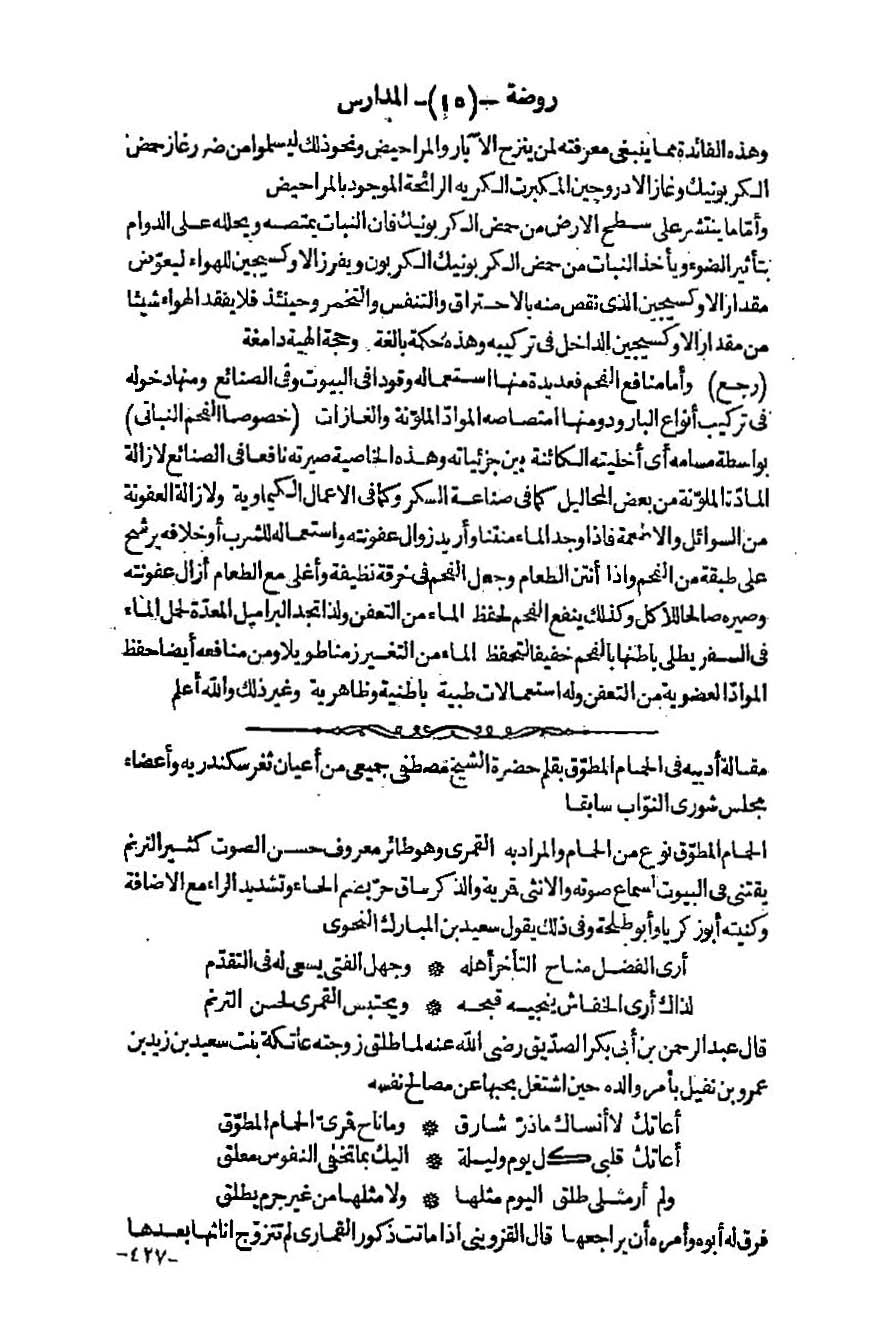 روضة -(١٥)- المدارس
وهذه الفائدة مما ينبغى معرفته لمن ينزح الآبار والمراحيض ونحو ذلك ليسلموا من ضرر غاز حمض
الكربونيك وغاز الادروجين المكبرت الكريه الرائحة الموجود بالمراحيض
وأما ما ينتشر على سطح الارض من حمض الكربونيك فان النبات يمتصه ويحلله على الدوام
بتأثير الضوء ويأخذ النبات من حمض الكربونيك الكربون ويفرز الاوكسيجين للهواء ليعوّض
مقدار الاوكسيجين الذى نقص منه بالاحتراق والتنفس والتخمر وحينئذ فلا يفقد الهواء شيئا
من مقدار الاوكسيجين الداخل فى تركيبه وهذه حكمة بالغة وحجة الهية دامغة
(رجع) وأما منافع الفحم فعديدة منها استعماله وقودا فى البيوت وفى الصنائع ومنها دخوله
فى تركيب أنواع البارود ومنها امتصاصه الموادّ الملوّنة والغازات (خصوصا الفحم النباتى)
بواسطة مسامه أى أخليته الكائنة بين جزئياته وهذه الخاصية صيرته نافعا فى الصنائع لازالة
المادّة الملوّنة من بعض المحاليل كما فى صناعة السكر وكما فى الاعمال الكيماوية ولازالة العفونة
من السوائل والاطعمة فاذا وجد الماء منتنا وأريد زوال عفونته واستعماله للشرب أو خلافه يرشح
على طبقة من الفحم واذا أنتن الطعام وجعل الفحم فى خرقة نظيفة وأغلى مع الطعام أزال عفونته
وصيره صالحا للأكل وكذلك ينفع الفحم لحفظ الماء من التعفن ولذا تجد البراميل المعدّة لحمل الماء
فى السفر يطلى باطنها بالفحم خفيفا لتحفظ الماء من التغير زمنا طويلا ومن منافعه أيضا حفظ
الموادّ العضوية من التعفن وله استعمالات طبية باطنية وظاهرية وغير ذلك والله أعلم
مقالة أدبيه فى الحمام المطوّق بقلم حضرة الشيخ مصطفى جميعى من أعيان ثغر سكندريه وأعضاء
مجلس شورى النوّاب سابقا
الحمام المطوّق نوع من الحمام والمراد به القمرى وهو طائر معروف حسن الصوت كثير الترنم
يقتنى فى البيوت لسماع صوته والانثى قمرية والذكر ساق حرّ بضم الحاء وتشديد الراء مع الاضافة
وكنيته أبو زكريا وأبو طلحة وفى ذلك يقول سعيد بن المبارك النحوى
أرى الفضل مناح التأخر أهله * وجهل الفتى يسعى له فى التقدّم
لذاك أرى الخفاش ينجيه قبحه * ويحتبس القمرى لحسن الترنم
قال عبد الرحمن بن أبى بكر الصدّيق رضى الله عنه لما طلق زوجته عاتكة بنت سعيد بن زيد بن
عمرو بن نفيل بأمر والده حين اشتغل بحبها عن مصالح نفسه
أعاتك لا أنساك ماذرّ شارق * وما ناح قمرىّ الحمام المطوّق
أعاتك قلبى كل يوم وليلة * اليك بما تخفى النفوس معلق
ولم أر مثلى طلق اليوم مثلها * ولا مثلها من غير جرم يطلق
فرق له أبوه وأمره أن يراجعها قال القزوينى اذا ماتت ذكور القمارى لم تتزوّج اناثها بعدها
-٤٢٧-